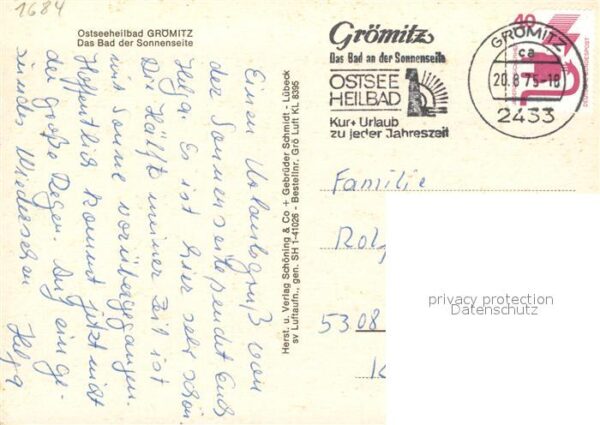 1684
Ostseeheilbad GRÖMITZ
Das Bad der Sonnenseite
Einen Urlaubsgruß von
der Sonnenseite sendet Euch
Helga. Es ist hier sehr schön
Die Hälfte meiner Zeit ist
mit Sonne vorübergegangen.
Hoffentlich kommt jetzt nicht
der große Regen. Auf ein ge-
sundes Wiedersehen Helga
Herst. u. Verlag Schöning & Co + Gebrüder Schmidt - Lübeck
sv Luftaufn., gen. SH 1-41026 - Bestellnr. Grö Luft KL 8395
Grömitz
Das Bad an der Sonnenseite
OSTSEE
HEILBAD
Kur + Urlaub
zu jeder Jahreszeit
40
GRÖMITZ
ca
20.8.75-18
2433
Familie
Rolf
5308
privacy protection
Datenschutz